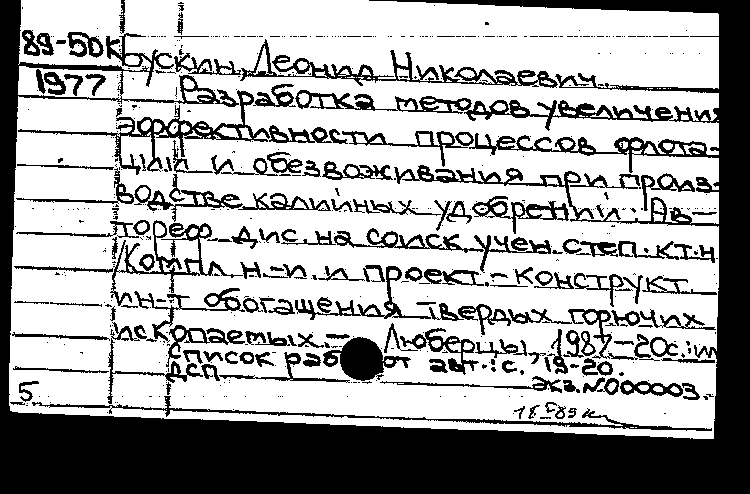 89-50К
1977
Бускин, Леонид Николаевич.
Разработка методов увеличения
эффективности процессов флота-
ции и обезвоживания при произ-
водстве калийных удобрений: Ав-
тореф дис. на соиск. учен. степ. к.т.н
/Компл н.-и. и проект.-конструкт.
ин-т обогащения твердых горючих
ископаемых.- Люберцы, 1987-20с.:ил
Список работ авт.: с. 19-20.
ДСП
Экз. N000003.
5